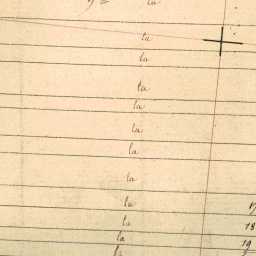 la
la
la
la
la
la
la
la
la
la
la 18
la 19
la